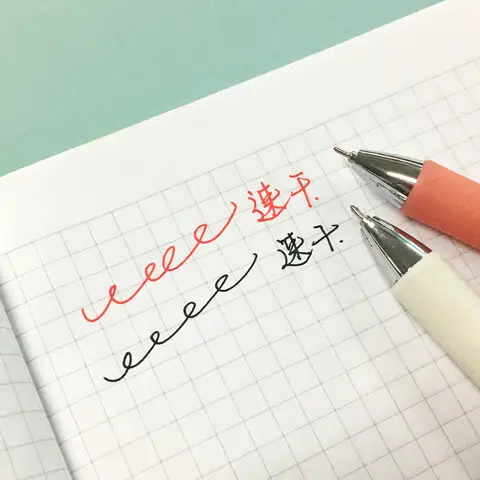 速干.
速干.